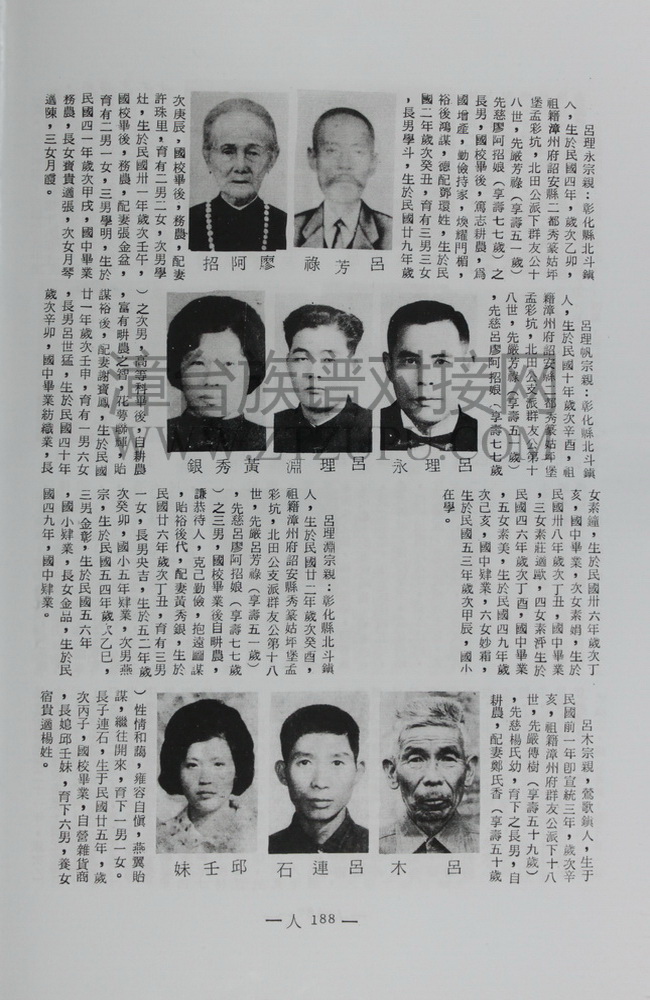 呂理永宗親：彰化縣北斗鎮
人，生於民國四年，歲次乙卯，
祖籍漳州府詔安縣二都秀篆姑坪
堡孟彩坑，北田公派下群友公十
八世，先嚴芳祿（享壽五一歲）
先慈廖阿招娘（享壽七七歲）之
長男，國校畢後，篤志耕農，爲
國增產，勤儉持家，煥耀門楣，
裕後鴻謀，德配鄧環姓，生於民
國二年歲次癸丑，育有三男三女
，長男學斗，生於民國廿九年歲
呂芳祿
廖阿招
次庚辰，國校畢後，務農，配妻
許珠里，育有二男二女，次男學
灶，生於民國卅一年歲次壬午，
國校畢後，務農，配妻張金盆，
育有二男一女，三男學明，生於
民國四一年歲次甲戌，國中畢業
務農，長女寶貴適張，次女月琴
適陳，三女月霞。
呂理帆宗親：彰化縣北斗鎮
人，生於民國十年歲次辛酉，祖
籍漳州府詔安縣二都秀篆姑坪堡
孟彩坑，北田公支派群友公第十
八世，先嚴芳祿（享壽五一歲）
，先慈呂廖阿招娘（享壽七七歲
呂理永
呂理淵
黃秀銀
）之次男，高等科畢後，自耕農
，富有耕農之智，花萼聯輝，貽
謀裕後，配妻謝寶鳳，生於民國
廿一年歲次壬申，育有一男六女
，長男呂世猛，生於民國四十年
歲次辛卯，國中畢業紡織業，長
女素鐘，生於民國卅六年歲次丁
亥，國中畢業，次女素娟，生於
民國卅八年歲次丁丑，國中畢業
，三女素莊適歐，四女素淨生於
民國四六年歲次丁酉，國中畢業
，五女素美，生於民國四九年歲
次己亥，國中肄業，六女妙霜，
生於民國五三年歲次甲辰，國小
在學。
呂理淵宗親：彰化縣北斗鎮
人，生於民國廿二年歲次癸酉，
祖籍漳州府詔安縣秀篆姑坪堡孟
彩坑，北田公支派群友公第十八
世，先嚴呂芳祿（享壽五一歲）
，先慈呂廖阿招娘（享壽七七歲
）之三男，國校畢業後自耕農，
謙恭待人，克己勤儉，抱遠圖謀
，貽裕後代，配妻黃秀銀，生於
民國廿六年歲次丁丑，育有三男
一女，長男央吉，生於五二年歲
次癸卯，國小五年肄業，次男燕
宗，生於民國五四年歲次乙巳，
三男金彰，生於民國五六年
，國小肄業，長女金品，生於民
國四九年，國中肄業。
呂木宗親，鶯歌鎮人，生于
民國前一年卽宣統三年，歲次辛
亥，祖籍漳州府群友公派下十八
世，先嚴傳樹（享壽五十九歲）
，先慈楊氏幼，育下之長男，自
耕農，配妻鄭氏香（享壽五十歲
呂木
呂連石
邱壬妹
）性情和藹，雍容自愼，燕翼貽
謀，繼往開來，育下一男一女。
長子連石，生于民國廿五年，歲
次丙子，國校畢業，自營雜貨商
，長媳邱壬妹，育下六男，養女
宿貴適楊姓。
—人 188—
章台族譜对接网
WWW.ZTZUPU.COM